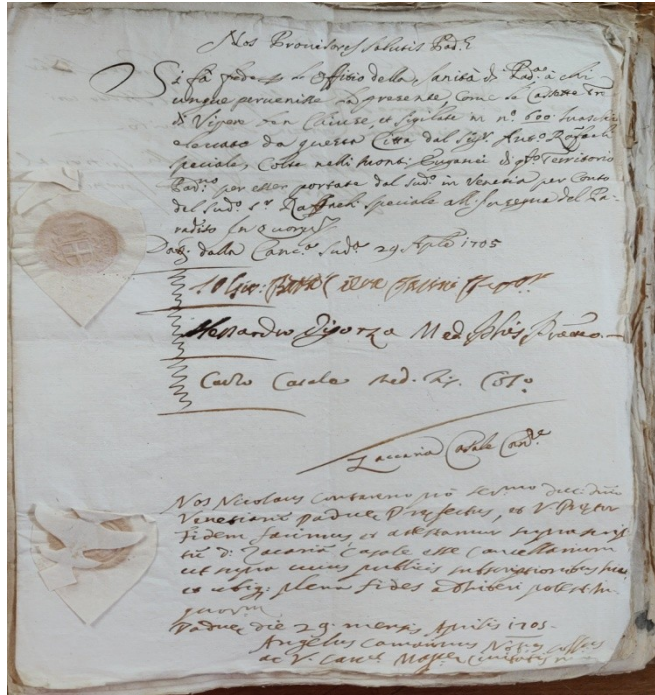 Nos Provisores Salutis Pad.e
Si fà fede de Offitio della Sanità di Pad.a à chi
unque pervenirà la presente, come le Cassette tre
di Vipere ben Chiuse, et sigilate in n.o 600:
da questa Città dal Sig.r Ant.o Raffaeli
speciale, Colte nelli Monti Euganei di q.to Territorio
Pad.no per esser portate dal sud.o in Venetia per Conto
del sud.o S.r Raffaeli speciale all' Insegna del Pa-
radiso In quor
Dat. dalla Canc.a sud.a 29 Aple 1705
Io Gio: Batta
Alessandro Med.
Carlo Casale Med. Fis.
Zaccaria Casale Canc.e
Nos Nicolaus Contareno pro ser.mo Duc. Dnio
Venetiarum Paduæ Præfectus, et V. Prætor
Fidem facimus et attestamur suprascrip
tũ D. Zacariã Casale esse Cancellarium
ut supra cuius publicis subscriptionibus
et ubiq; plena fides adhiberi potest In
quorum
Paduæ die 29. mensis Aprilis 1705.
Angelus Not.us
ac V. Canc.